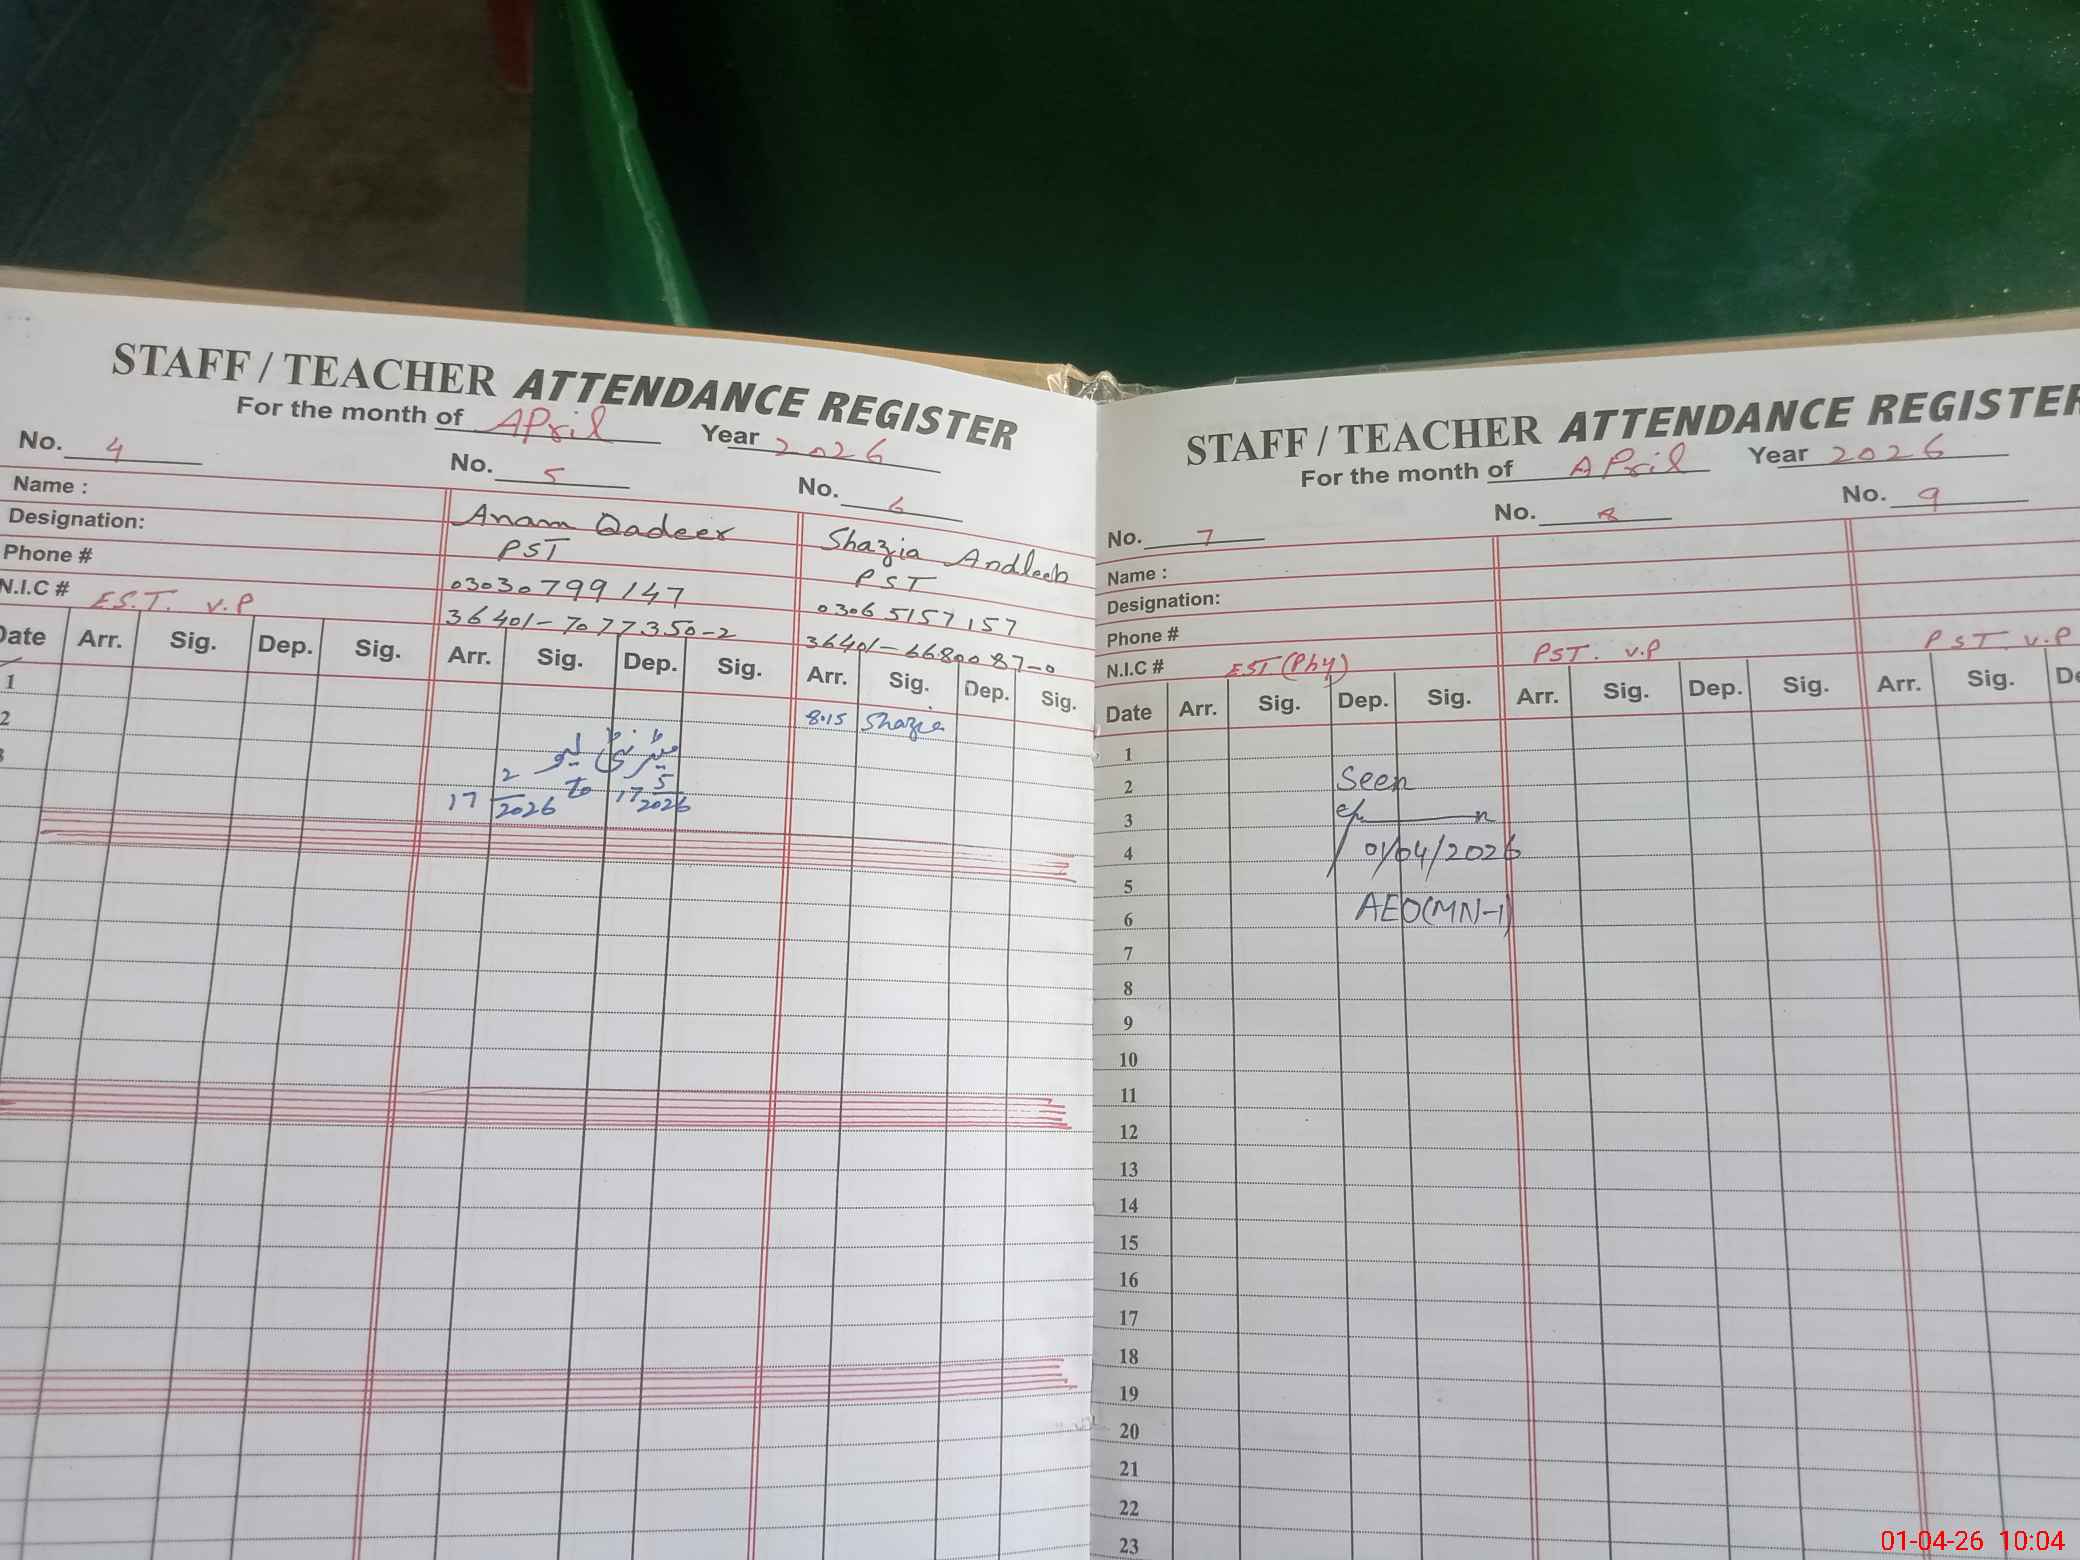 STAFF / TEACHER ATTENDANCE REGISTER
For the month of April Year 2026
No. 4 No. 5 No. 6
Name : Anam Qadeer Shazia Andleeb
Designation: PST PST
Phone # 03030799147 03065157157
N.I.C # E.S.T. V.P 36401-7077350-2 36401-6680087-0
Date Arr. Sig. Dep. Sig. Arr. Sig. Dep. Sig. Arr. Sig. Dep. Sig.
1 8.15 Shazia
2 میٹرنٹی لیو
17 2/2026 to 17 5/2026
STAFF / TEACHER ATTENDANCE REGISTER
For the month of April Year 2026
No. 7 No. 8 No. 9
Name :
Designation:
Phone #
N.I.C # EST (Phy) PST. V.P PST V.P
Date Arr. Sig. Dep. Sig. Arr. Sig. Dep. Sig. Arr. Sig. De
1
2 Seen
3
4 01/04/2026
5
6 AEO(MN-1)
7
8
9
10
11
12
13
14
15
16
17
18
19
20
21
22
23
01-04-26 10:04